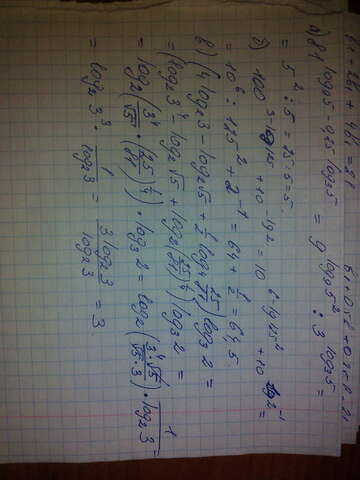 а) 81^{log₉5} - 9,5^{log₃5} = 9^{log₉5²} : 3^{log₃5} =
= 5² : 5 = 25 : 5 = 5.
б) 100^{3-lg√125} + 10^{-lg2} = 10^{6-lg125²} + 10^{lg2^{-1}} =
= 10⁶ : 125² + 2⁻¹ = 64 + 1/2 = 64,5
в) (4 log₂3 - log₂√5 + 1/2 log₄ 25/81) log₃2 =
= (log₂3⁴ - log₂√5 + log₂(25/81)^{1/4}) log₃2 =
= log₂(3⁴/√5 · (25/81)^{1/4}) · log₃2 = log₂(3⁴·√5/√5·3) · 1/log₂3 =
= log₂3³ · 1/log₂3 = 3log₂3/log₂3 = 3